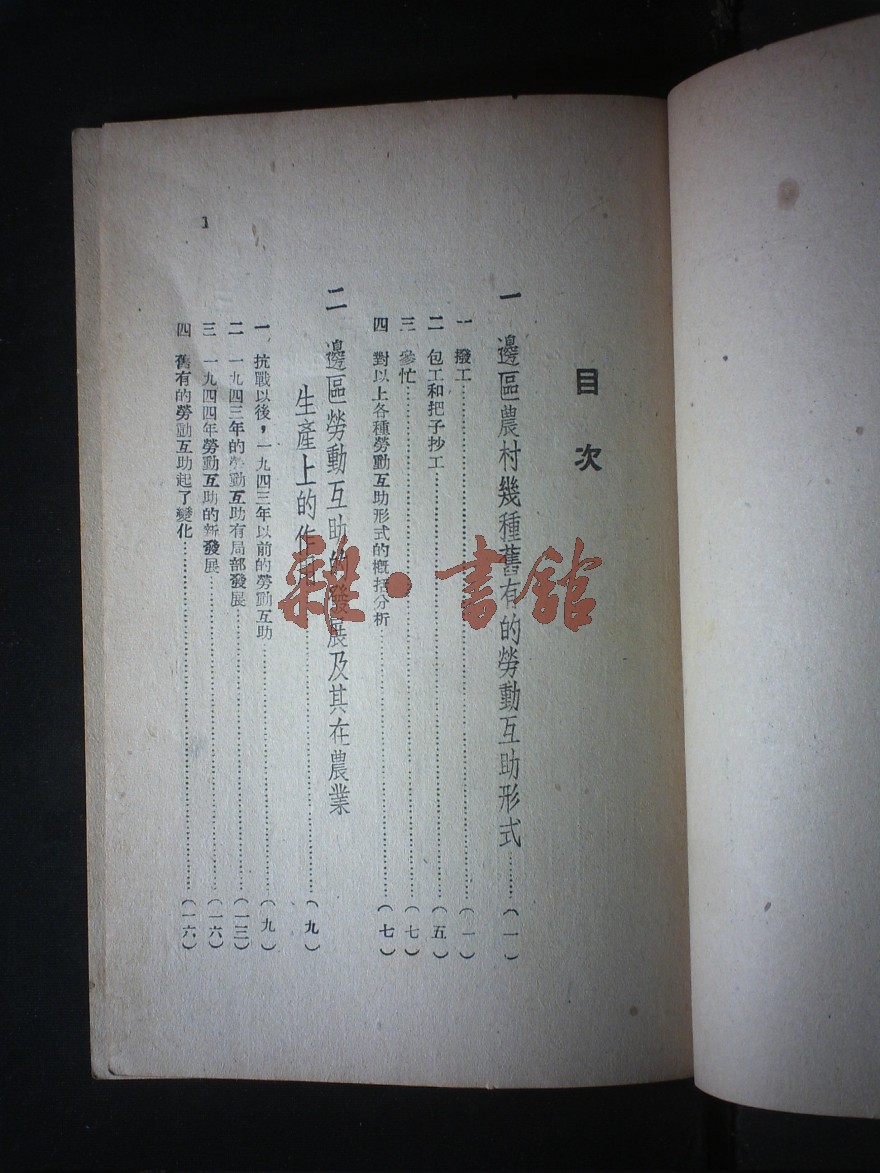 目次
一 邊區農村幾種舊有的勞動互助形式………(一)
一 撥工………(一)
二 包工和把子抄工………(五)
三 參忙………(七)
四 對以上各種勞動互助形式的概括分析………(七)
二 邊區勞動互助的發展及其在農業
生產上的作用………(九)
一 抗戰以後，一九四三年以前的勞動互助………(九)
二 一九四三年的勞動互助有局部發展………(一三)
三 一九四四年勞動互助的新發展………(一六)
四 舊有的勞動互助起了變化………(一六)
1
雜·書館